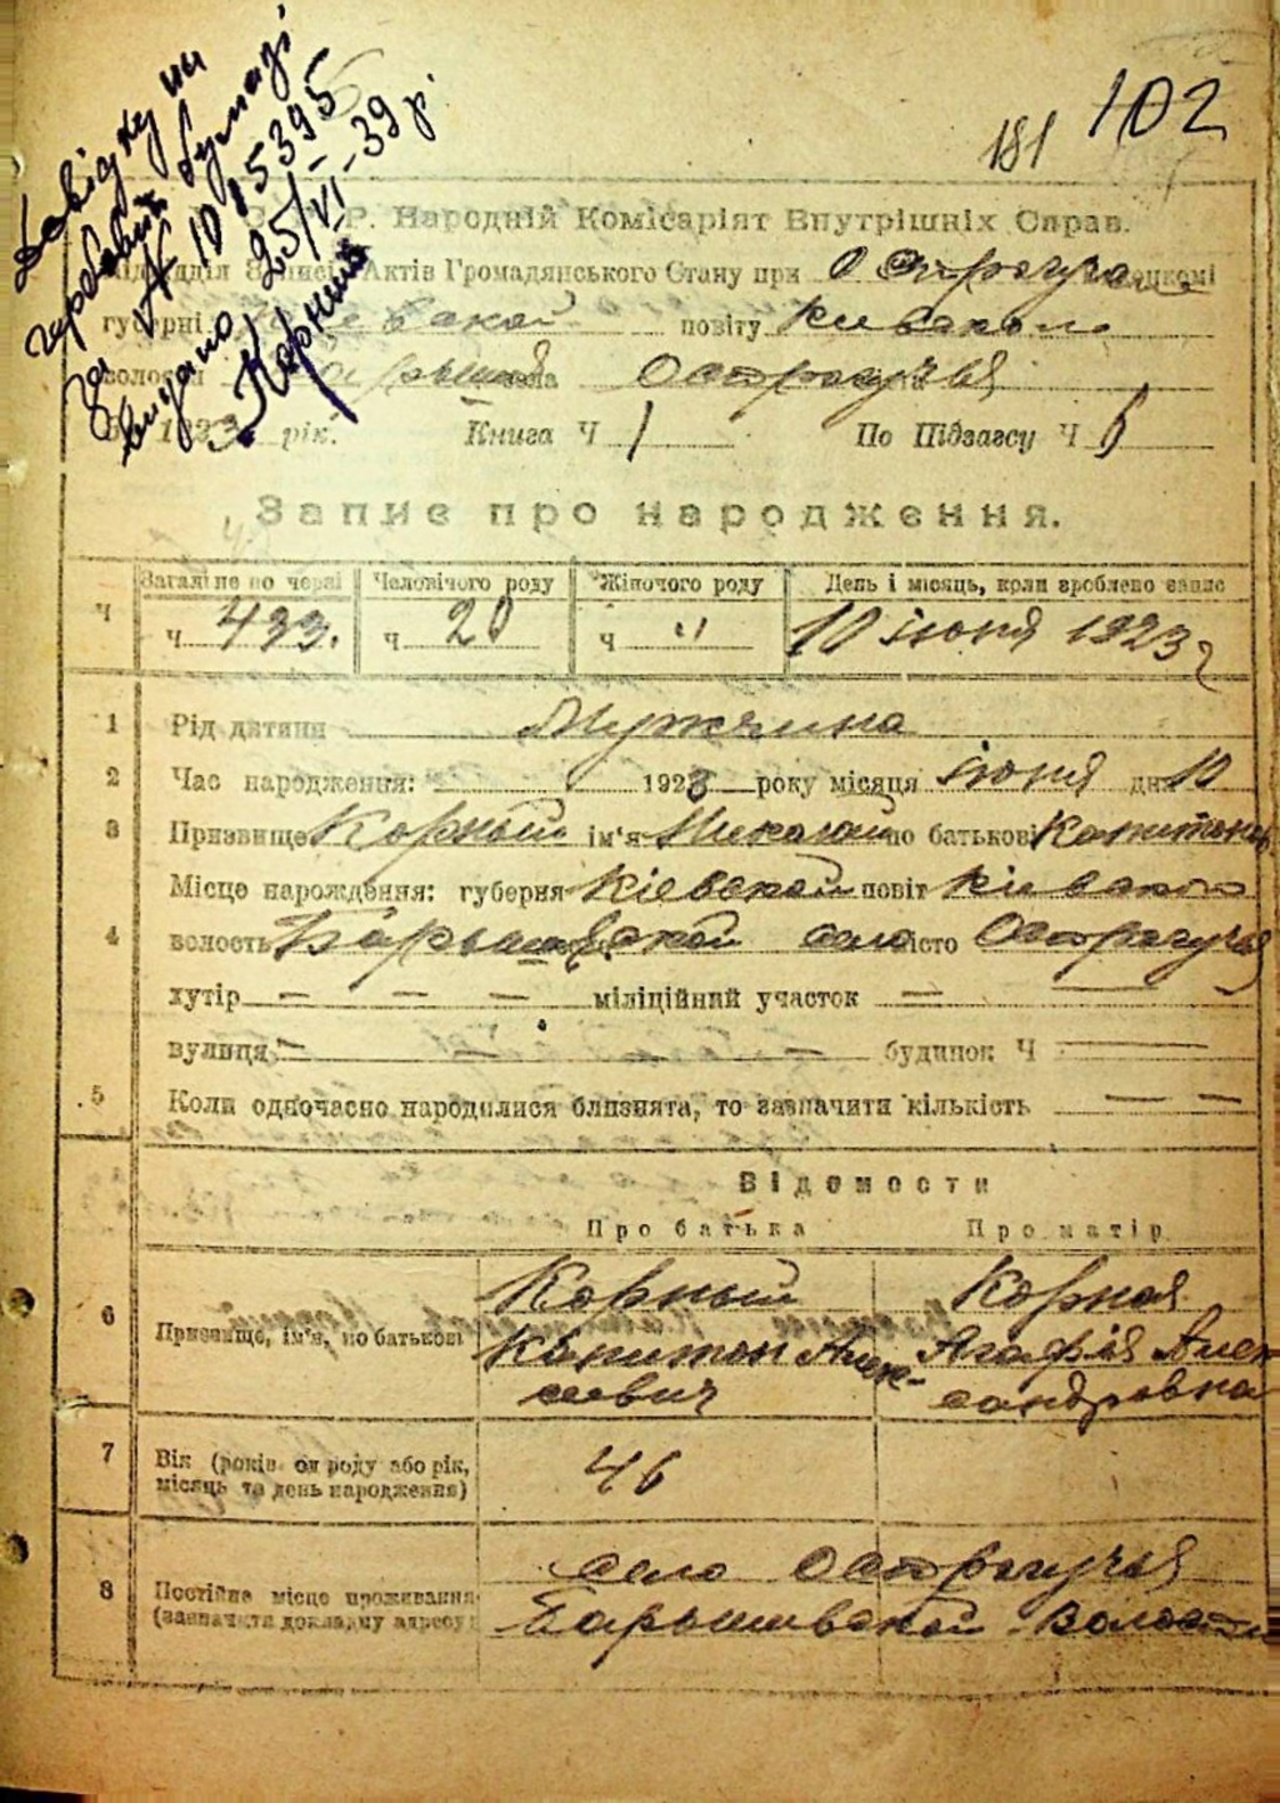 Довідку на
гербовій бумазі
за № 10 15395
видано 25/VI-39 р.
Корний
181 102
Р. Народній Комісаріят Внутрішніх Справ.
Підвідділ Записів Актів Громадянського Стану при
губерні повіту Киевском
волости села Острогучья
1923 рік. Книга Ч 1 По Підзагсу Ч
Запис про народження.
Загальне по черзі Чоловічого роду Жіночого роду День і місяць, коли зроблено запис
Ч ч 433. ч 20 ч " 10 іюня 1923 г
1 Рід дитини Мужчина
2 Час народження: 1923 року місяця іюня дня 10
3 Призвище Корный ім'я Николай по батькові Капитонов
Місце народження: губерня Кіевской повіт Кіевского
4 волость Барышевской село місто Острогучья
хутір — — — міліційний участок —
вулиця — — — будинок Ч —
5 Коли одночасно народилися близнята, то зазначити кількість — —
Відомости
Про батька Про матір
6 Призвище, ім'я, по батькові
Корный Корная
Капитон Алек- Агафія Алек
сеевич сандровна
7 Вік (років од роду або рік, місяць та день народження) 46
8 Постійне місце проживання (зазначити докладну адресу)
село Острогучья
Барышевской волости